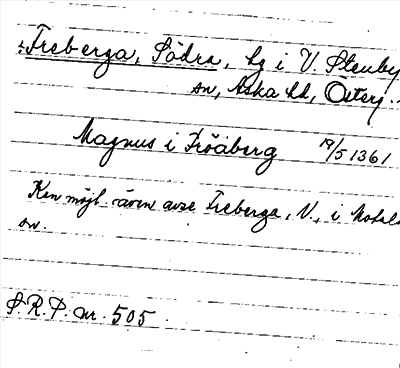 Freberga, Södra, hg i V. Stenby
sn, Aska hd, Österg.
Magnus i Fröäberg 19/5 1361
Kan möjl. även avse Freberga, N., i Motala
sn.
S.R.P. nr. 505.